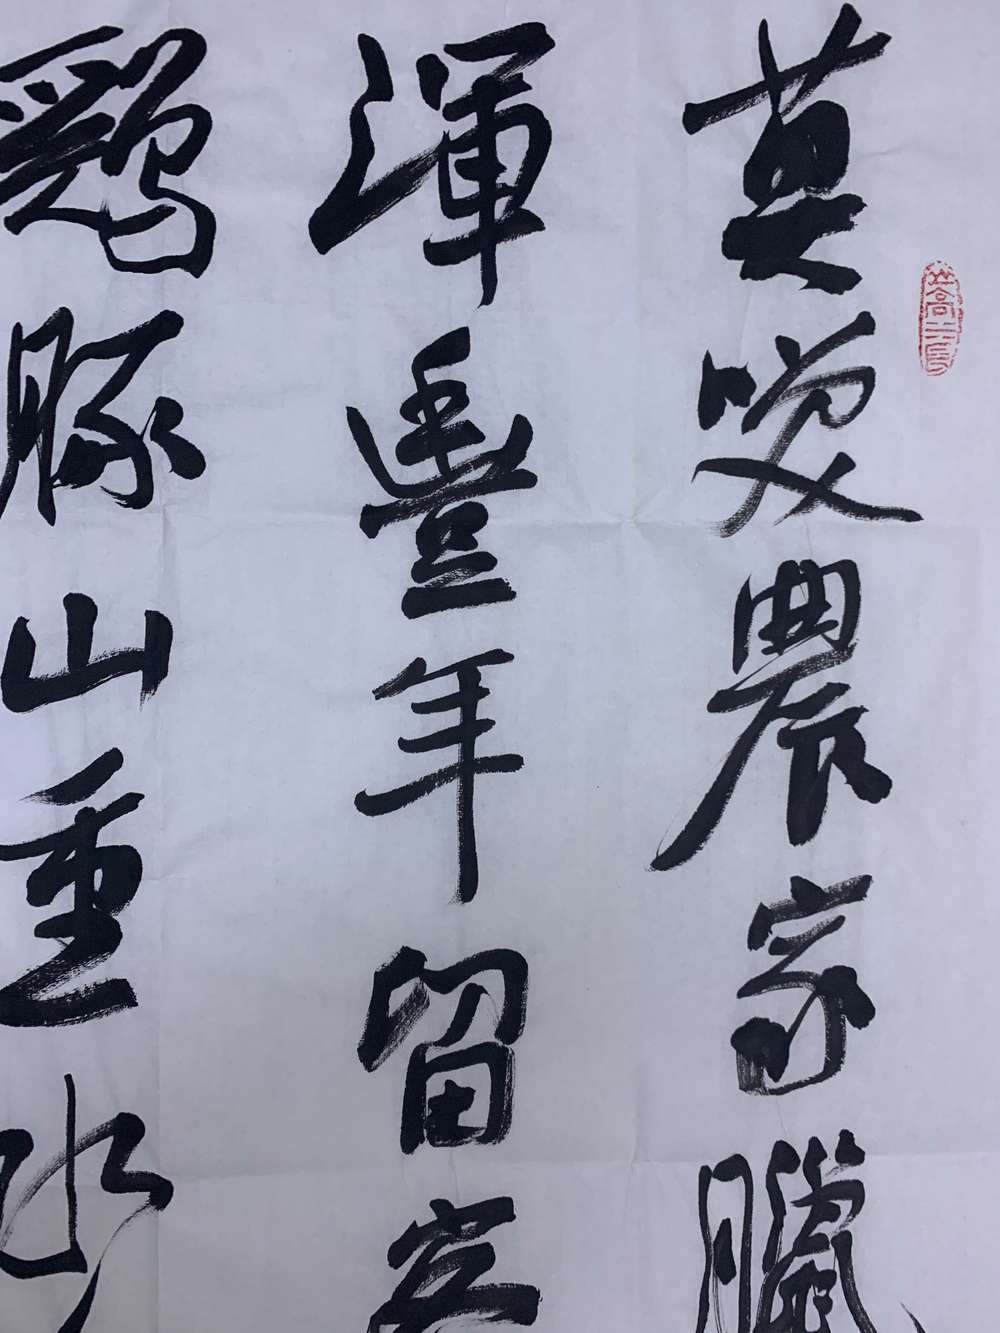 莫笑農家臘
渾豐年留客
雞豚山重水